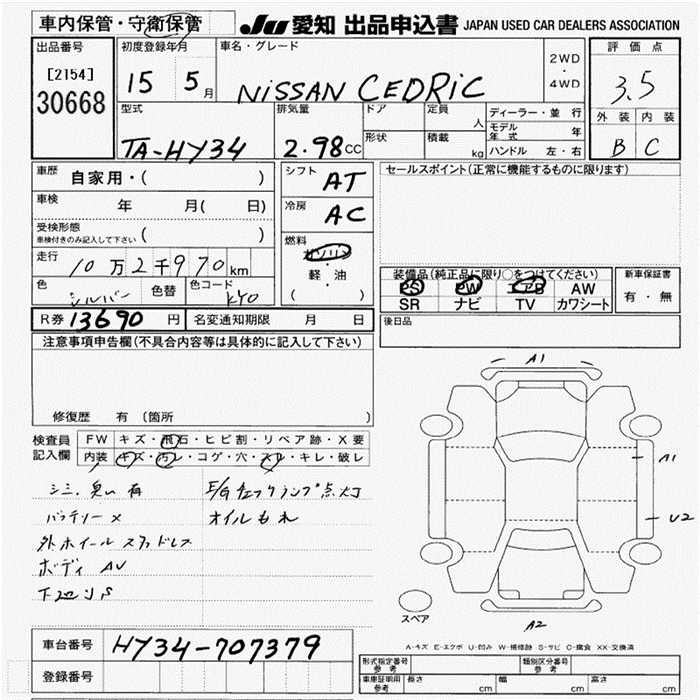 車内保管・守衛保管
JU 愛知 出品申込書 JAPAN USED CAR DEALERS ASSOCIATION
出品番号
[2154]
30668
初度登録年月
15 5月
車名・グレード
NISSAN CEDRIC
2WD
・
4WD
評価点
3.5
外装 内装
B C
型式
TA-HY34
排気量
2.98cc
ドア
形状
定員 人
積載 kg
ディーラー・並 行
モデル年式 年
ハンドル 左・右
車歴 自家用・( )
車検 年 月( 日)
受検形態
車検付きのみ記入して下さい ( )
走行 10万2千970km
色 シルバー 色替 色コード KY0
シフト AT
冷房 AC
燃料
ガソリン
軽・油
( )
セールスポイント(正常に機能するものに限ります)
装備品(純正品に限り○をつけてください)
PS PW エアB AW
SR ナビ TV カワシート
新車保証書
有・無
R券 13690 円 名変通知期限 月 日
後日品
注意事項申告欄(不具合内容等は具体的に記入して下さい)
修復歴 有 〔箇所 〕
検査員記入欄
FW キズ・飛石・ヒビ割・リペア跡・X要
内装 キズ・汚レ・コゲ・穴・スレ・キレ・破レ
シミ、臭い有 E/Gチェックランプ点灯
バッテリーX オイルもれ
外ホイール スタッドレス
ボディ AU
下廻りS
A1
A1
U2
A2
スペア
A-キズ E-エクボ U-凹み W-補修跡 S-サビ C-腐食 XX-交換済
車台番号 HY34-707379
登録番号
形式指定番号 参考
類別区分番号 参考
車庫証明用 参考 長さ cm 幅 cm 高さ cm